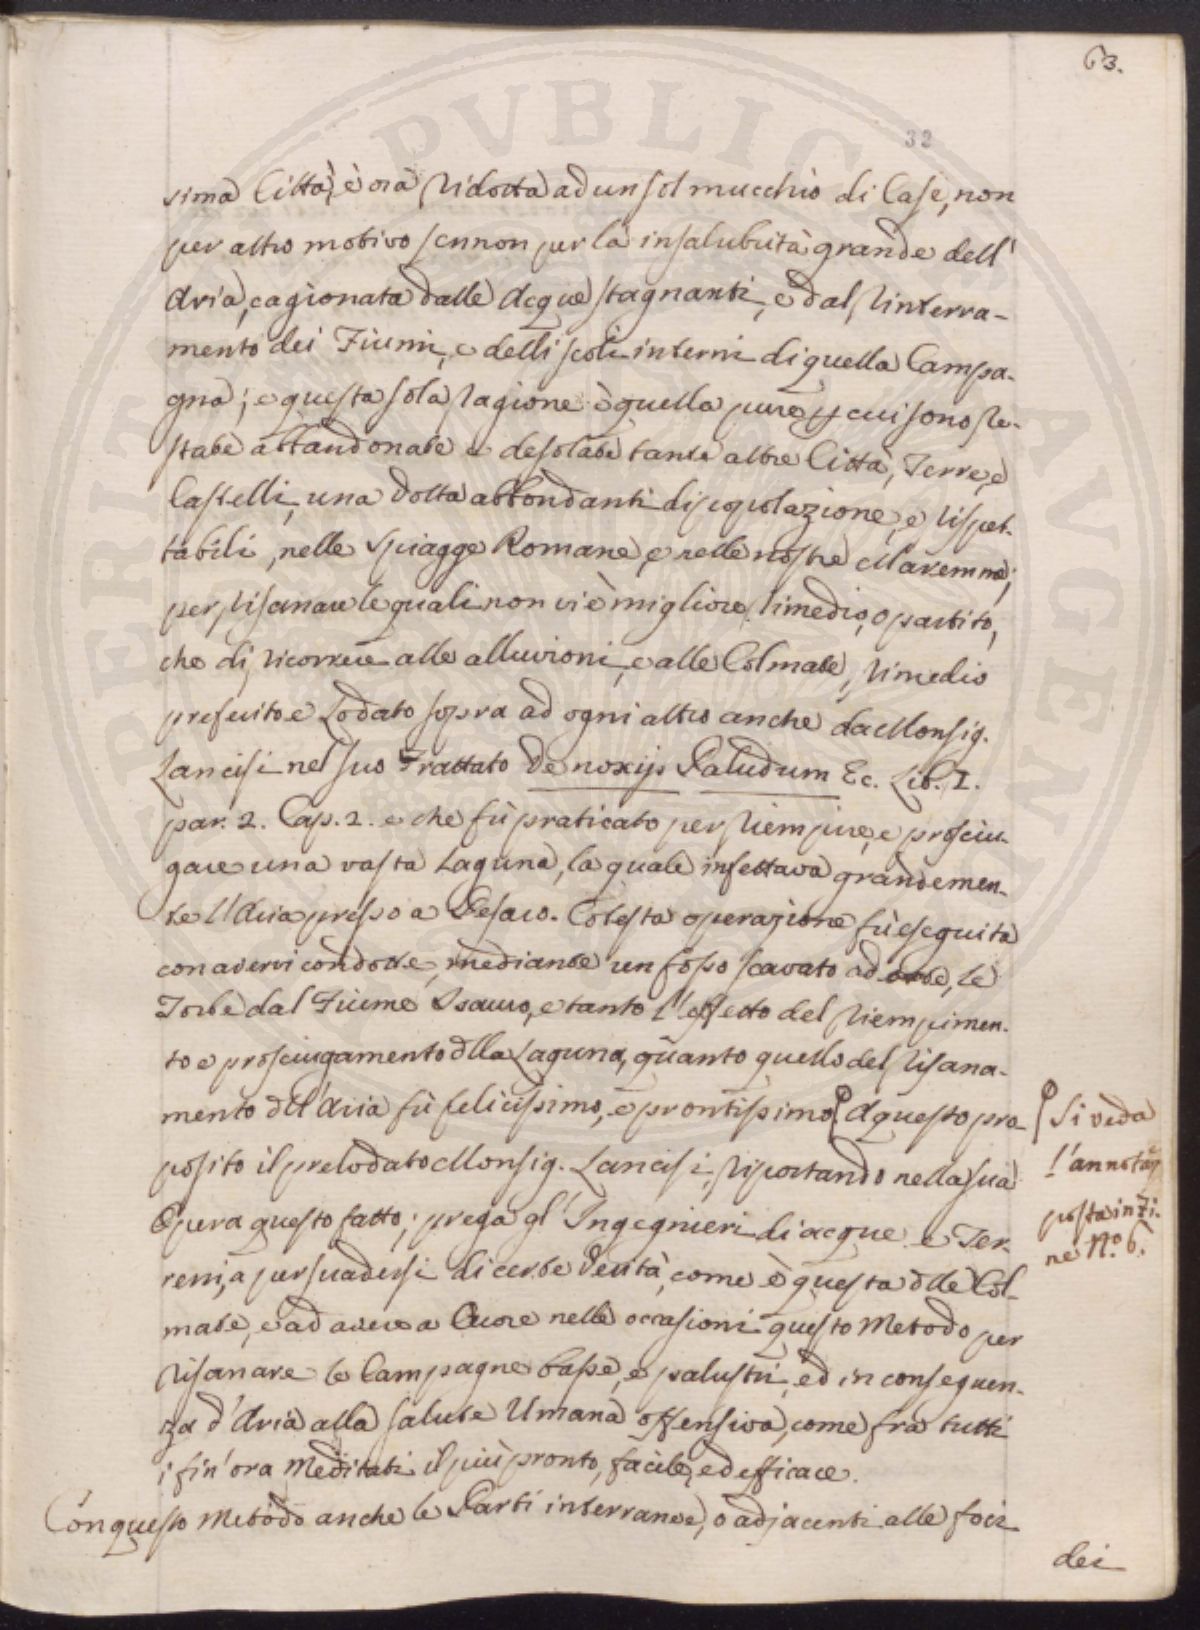 63.
32
sima Città, è ora ridotta ad un sol mucchio di Case, non
per altro motivo sennon per la insalubrità grande dell'
Aria, cagionata dalle Acque stagnanti, e dal rinterra-
mento dei Fiumi, e delli scoli interni di quella Campa-
gna; e questa sola ragione è quella pure p cui sono re-
state abbandonate e desolate tante altre Città, Terre, e
Castelli, una volta abbondanti di popolazione, e rispet-
tabili, nelle Spiagge Romane, e nelle nostre Maremme;
per risanare le quali non vi è migliore rimedio, o partito,
che di ricorrere alle alluvioni, e alle Colmate, rimedio
preferito e Lodato sopra ad ogni altro anche da Monsig.
Lancisi nel suo Trattato De noxijs Paludum Ec. Lib. I.
par. 2. Cap. 2. e che fù praticato per riempire, e prosciu-
gare una vasta Laguna, la quale infettava grandemen-
te l'Aria presso a Pesaro. Cotesta operazione fù eseguita
con avervi condotte, mediante un fosso scavato ad arte, le
Torbe dal Fiume Isauro, e tanto l'effetto del riempimen-
to e prosciugamento dlla Laguna, quanto quello del risana-
mento dell'Aria fù felicissimo, e prontissimo. A questo pro-
posito il prelodato Monsig. Lancisi, riportando nella sua
Opera questo fatto, prega gl'Ingegnieri di acque e Ter-
reni, a persuadersi di certe Verità, come è questa dlle Col-
mate, e ad avere a Cuore nelle occasioni questo Metodo per
risanare le Campagne basse, e palustri, ed in conseguen-
za d'Aria alla salute Umana offensiva, come frà tutti
i fin'ora Meditati il più pronto, facile, ed efficace.
Con questo Metodo anche le Parti interrane, o adjacenti alle foci
dei
Si veda
l'annotaz
posta in fi-
ne N.º 6.